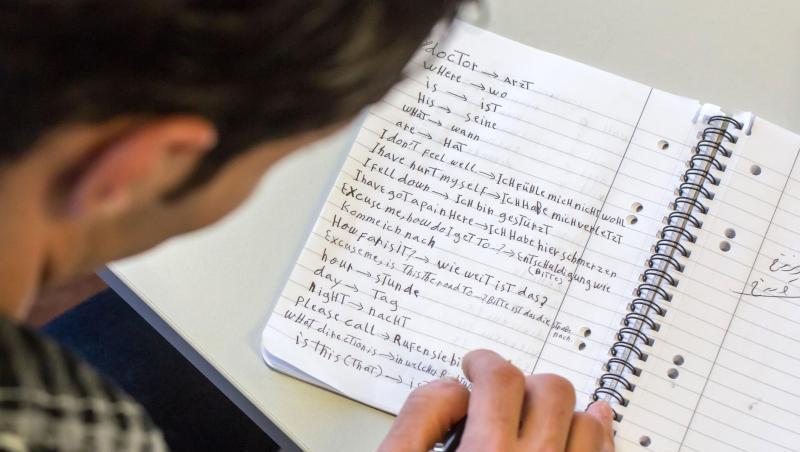 doctor → Arzt
where → wo
is → ist
His → seine
what → wann
are → Hat
I don't feel well → Ich fühle mich nicht wohl
I have hurt myself → Ich habe mich verletzt
I fell down → Ich bin gestürzt
I have got a pain Here → Ich Habe hier schmerzen
Excuse me, how do I get to..? → Entschuldigung wie
(Bitte)
komme ich nach
How far is it? → wie weit ist das?
Excuse me, is this the road to → ? Bitte ist das die straße
nach.
hour → stunde
day → Tag
night → nacht
please call → Rufen sie bi
what direction is → in welcher
is this (that) →